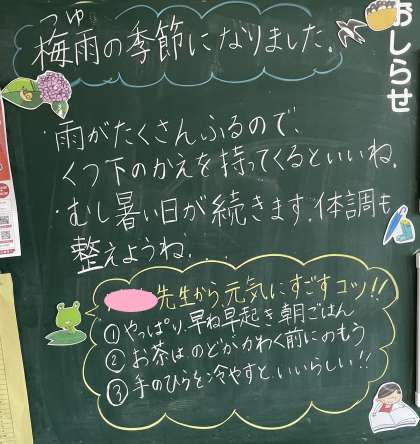 おしらせ
つゆ
梅雨の季節になりました。
・雨がたくさんふるので、
くつ下のかえを持ってくるといいね。
・むし暑い日が続きます。体調も
整えようね...
先生から、元気にすごすコツ!!
①やっぱり、早ね早起き朝ごはん
②お茶はのどがかわく前にのもう
③手のひらを冷やすといいらしい!!